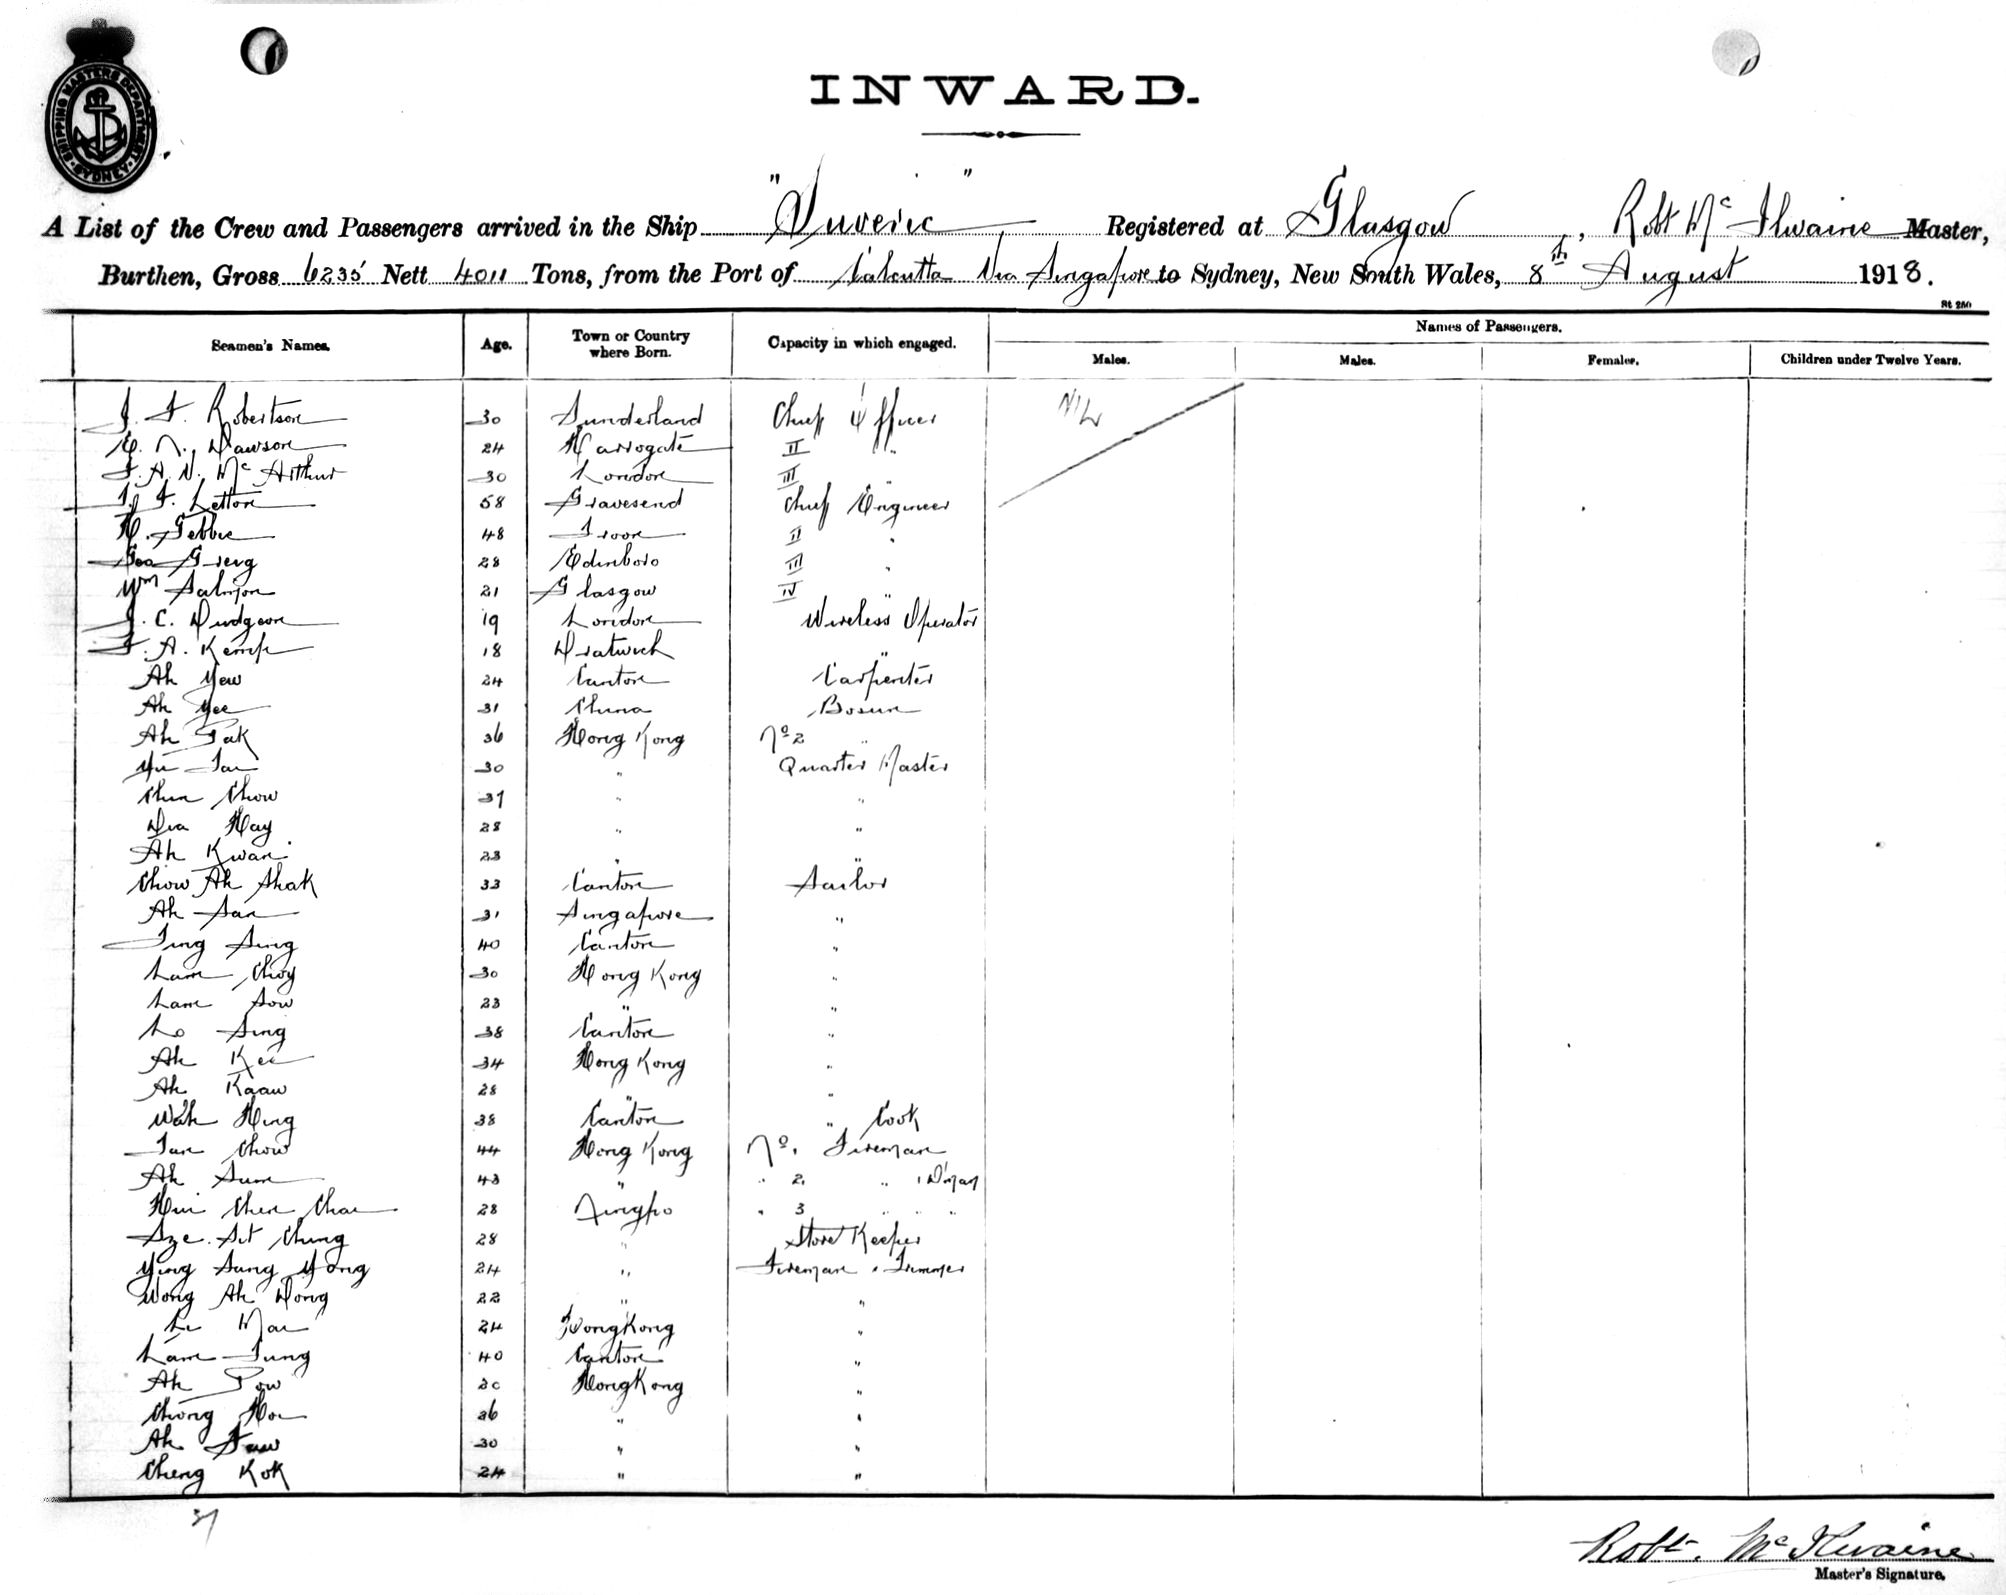 SHIPPING MASTERS DEPARTMENT SYDNEY
INWARD.
A List of the Crew and Passengers arrived in the Ship "Suveric" Registered at Glasgow, Robt McIlwaine Master,
Burthen, Gross 6235 Nett 4011 Tons, from the Port of Calcutta Via Singapore to Sydney, New South Wales, 8th August 1918.
St 250
Seamen's Names. Age. Town or Country where Born. Capacity in which engaged. Names of Passengers.
Males. Males. Females. Children under Twelve Years.
J. F. Robertson 30 Sunderland Chief Officer Nil
E. N. Dawson 24 Harrogate II "
F. A. N. McArthur 30 London III "
J. F. Letton 58 Gravesend Chief Engineer
H. Gebbie 48 Troon II "
Geo Greig 28 Edinboro III "
Wm Salmon 21 Glasgow IV "
J. C. Dudgeon 19 London Wireless Operator
F. A. Kemp 18 Dratwich "
Ah Yew 24 Canton Carpenter
Ah Yee 31 China Bosun
Ah Pak 36 Hong Kong No 2 "
Yu Tai 30 " Quarter Master
Chun Chow 37 " "
Dia Hay 28 " "
Ah Kwan 23 " "
Chow Ah Shak 33 Canton Sailor
Ah San 31 Singapore "
Ting Sing 40 Canton "
Lam Choy 30 Hong Kong "
Lam Sow 23 " "
Lo Sing 38 Canton "
Ah Kee 34 Hong Kong "
Ah Kaaw 28 " "
Wah Hing 38 Canton " Cook
Tan Chow 44 Hong Kong No 1 Fireman
Ah Sum 43 " " 2 " D'man
Hui Chen Chai 28 Ningpo " 3 " "
Sze Sit Chung 28 " Store Keeper
Ying Sung Yong 24 " Fireman & Trimmer
Wong Ah Dong 22 " "
Li Mai 24 HongKong "
Lam Tung 40 Canton "
Ah Pow 30 HongKong "
Chong Hoi 26 " "
Ah 30 " "
Cheng Kok 24 " "
37
Robt. McIlwaine
Master's Signature.